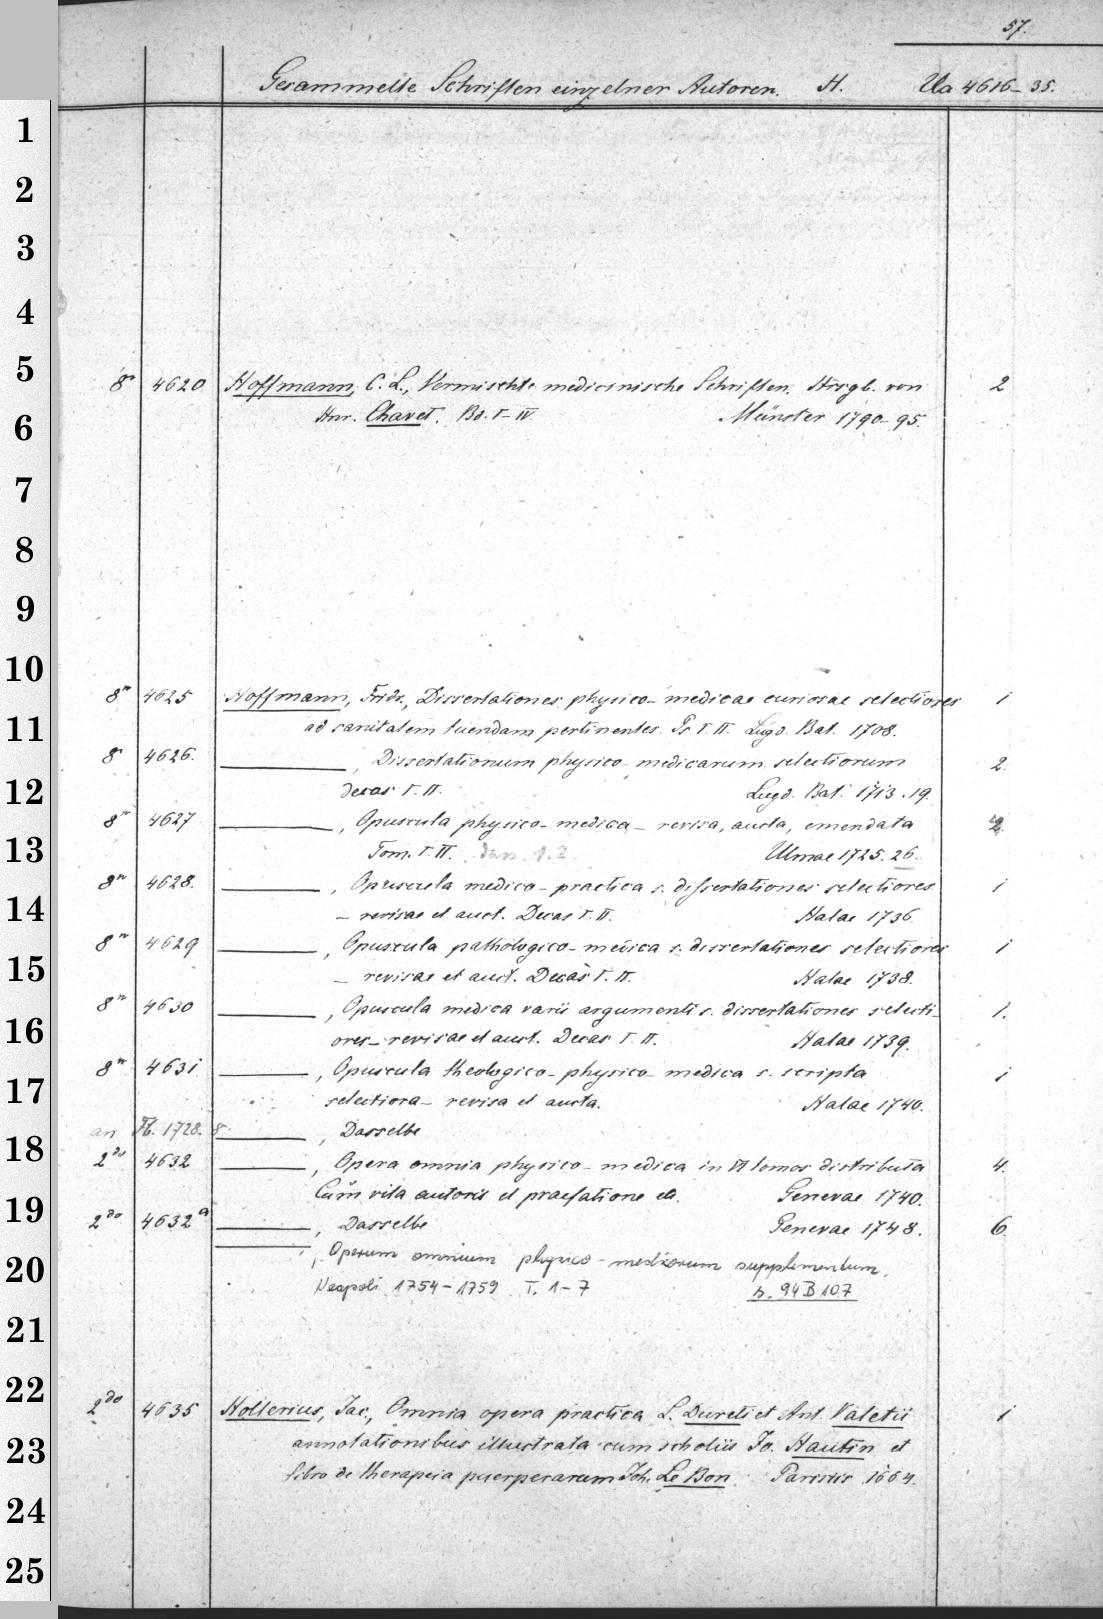 57.
Gesammelte Schriften einzelner Autoren. H. Ua 4616-35.
1
2
3
4
5
8° 4620 Hoffmann, C. L., Vermischte medicinische Schriften. Hrsgb. von 2
6
Hnr. Chavet. Bd. I-IV Münster 1790-95.
7
8
9
10
8° 4625 Hoffmann, Fridr., Dissertationes physico-medicae curiosae selectiores 1
11
ad sanitatem tuendam pertinentes. Ps I. II. Lugd. Bat. 1708.
8° 4626. ———, Dissertationum physico-medicarum selectiorum 2.
12
decas I. II. Lugd. Bat. 1713.19.
8° 4627 ———, Opuscula physico-medica - revisa, aucta, emendata 2
13
Tom. I. II. Ulmae 1725.26.
8° 4628. ———, Opuscula medico-practica s. dissertationes selectiores 1
14
- revisae et auct. Decas I. II. Halae 1736
8° 4629 ———, Opuscula pathologico-medica s. dissertationes selectiores 1
15
- revisae et auct. Decas I. II. Halae 1738.
8° 4630 ———, Opuscula medica varii argumenti s. dissertationes selecti- 1.
16
ores - revisae et auct. Decas I. II. Halae 1739.
8° 4631 ———, Opuscula theologico-physico-medica s. scripta 1
17
selectiora - revisa et aucta. Halae 1740.
an 1728. 8° ———, Dasselbe
18
2do 4632 ———, Opera omnia physico-medica in VI tomos distributa 4.
Cum vita autoris et praefatione ea. Genevae 1740.
19
2do 4632a ———, Dasselbe Genevae 1748. 6
———, Operum omnium physico-medicorum supplementum.
20
Neapoli 1754-1759 T. 1-7 s. 94 B 107
21
22
2do 4635 Hollerius, Jac., Omnia opera practica L. Dureti et Ant. Valetii 1
23
annotationibus illustrata cum scholiis Jo. Hautin et
libro de therapeia puerperarum Joh. Le Bon. Parisiis 1664.
24
25